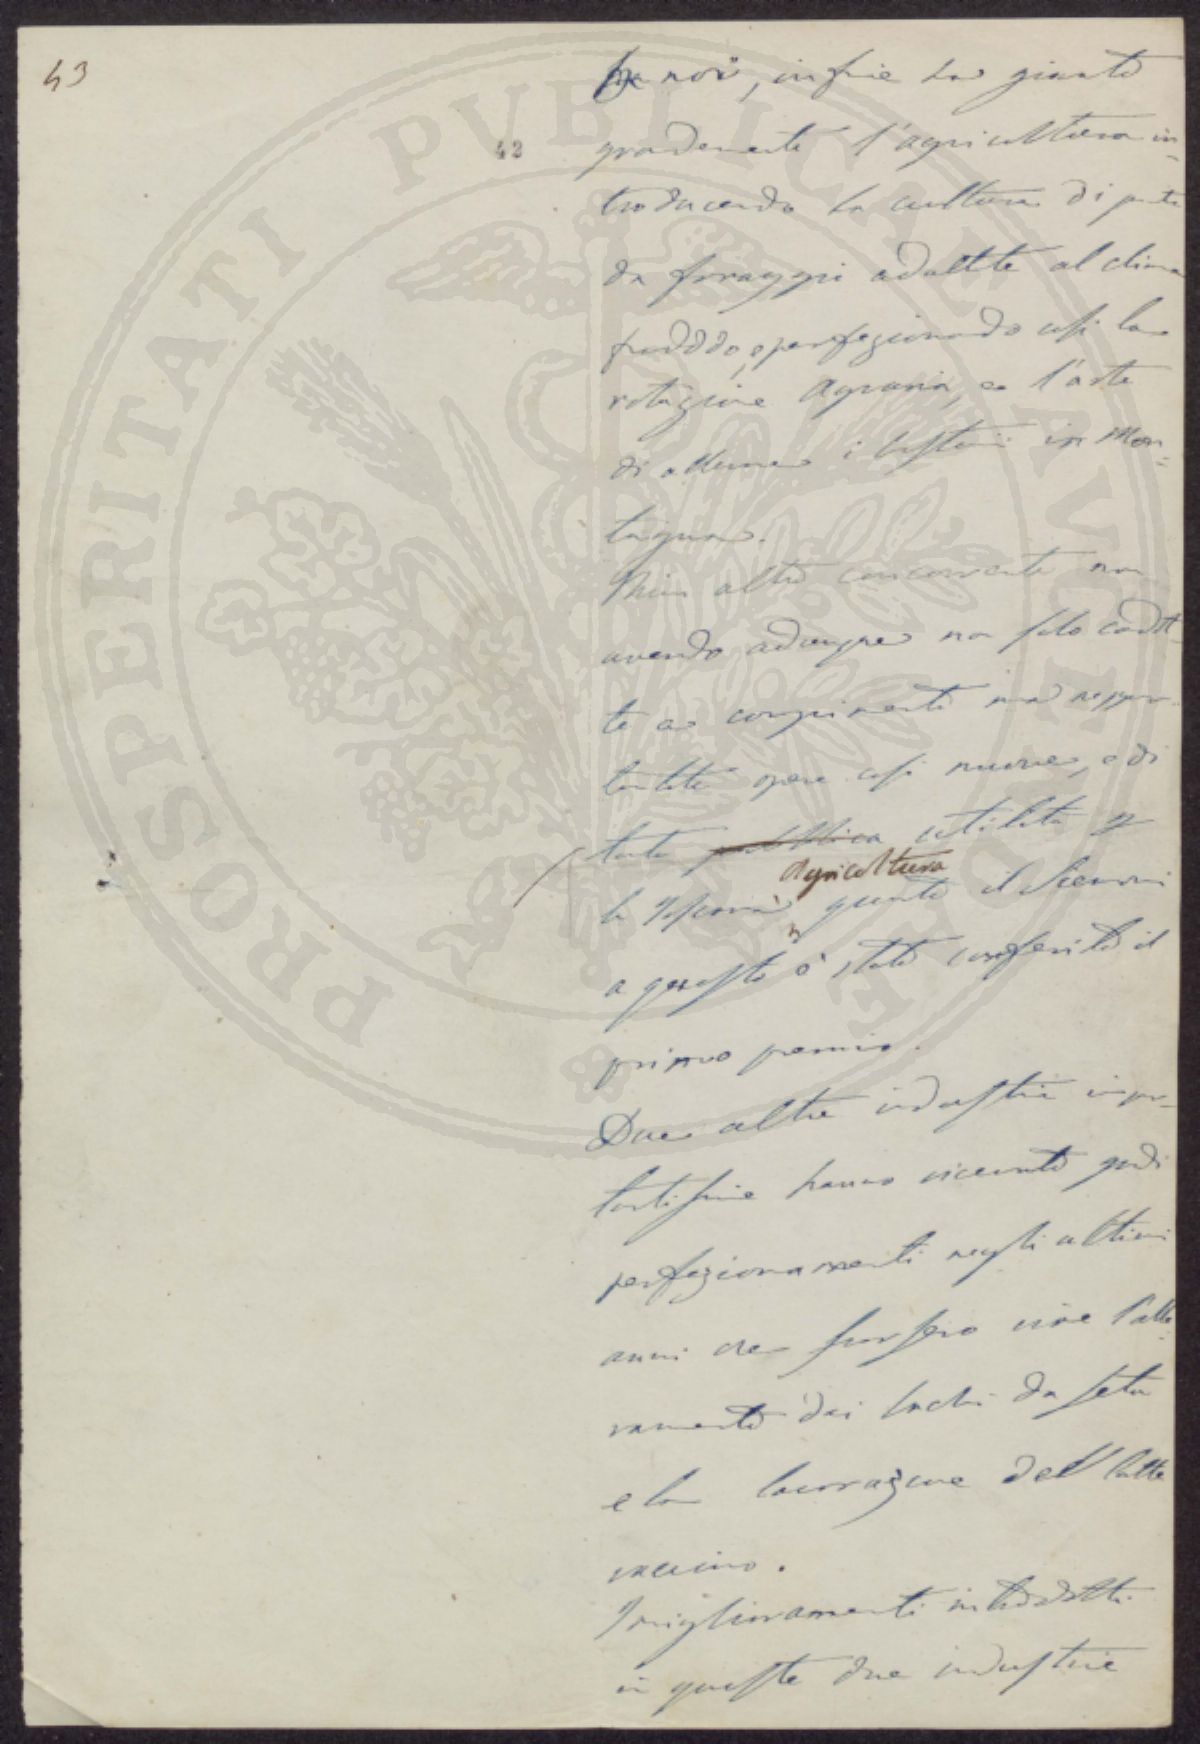 43
42
fra noi, infine ha giovato
grandemente l'agricoltura in-
troducendo la cultura di prati
da foraggi adattte al clima
freddo, e perfezionando così la
rotazione Agraria, e l'arte
di allevare i bestiami in Mon-
tagna.
Niun altro concorrente non
avendo adunque non solo condot-
te a compimento ma neppur
tentate opere così nuove, e di
tanta pubblica utilità p
Agricoltura
la quanto il
a questo è stato conferito il
primo premio.
Due altre industrie impor-
tantissime hanno ricevuto grandi
perfezionamenti negli ultimi
anni che furono cioè l'alle-
vamento dei bachi da seta
e la lavorazione del latte
vaccino.
I miglioramenti introdotti
in queste due industrie
PROSPERITATI PUBLICAE AUGENDAE